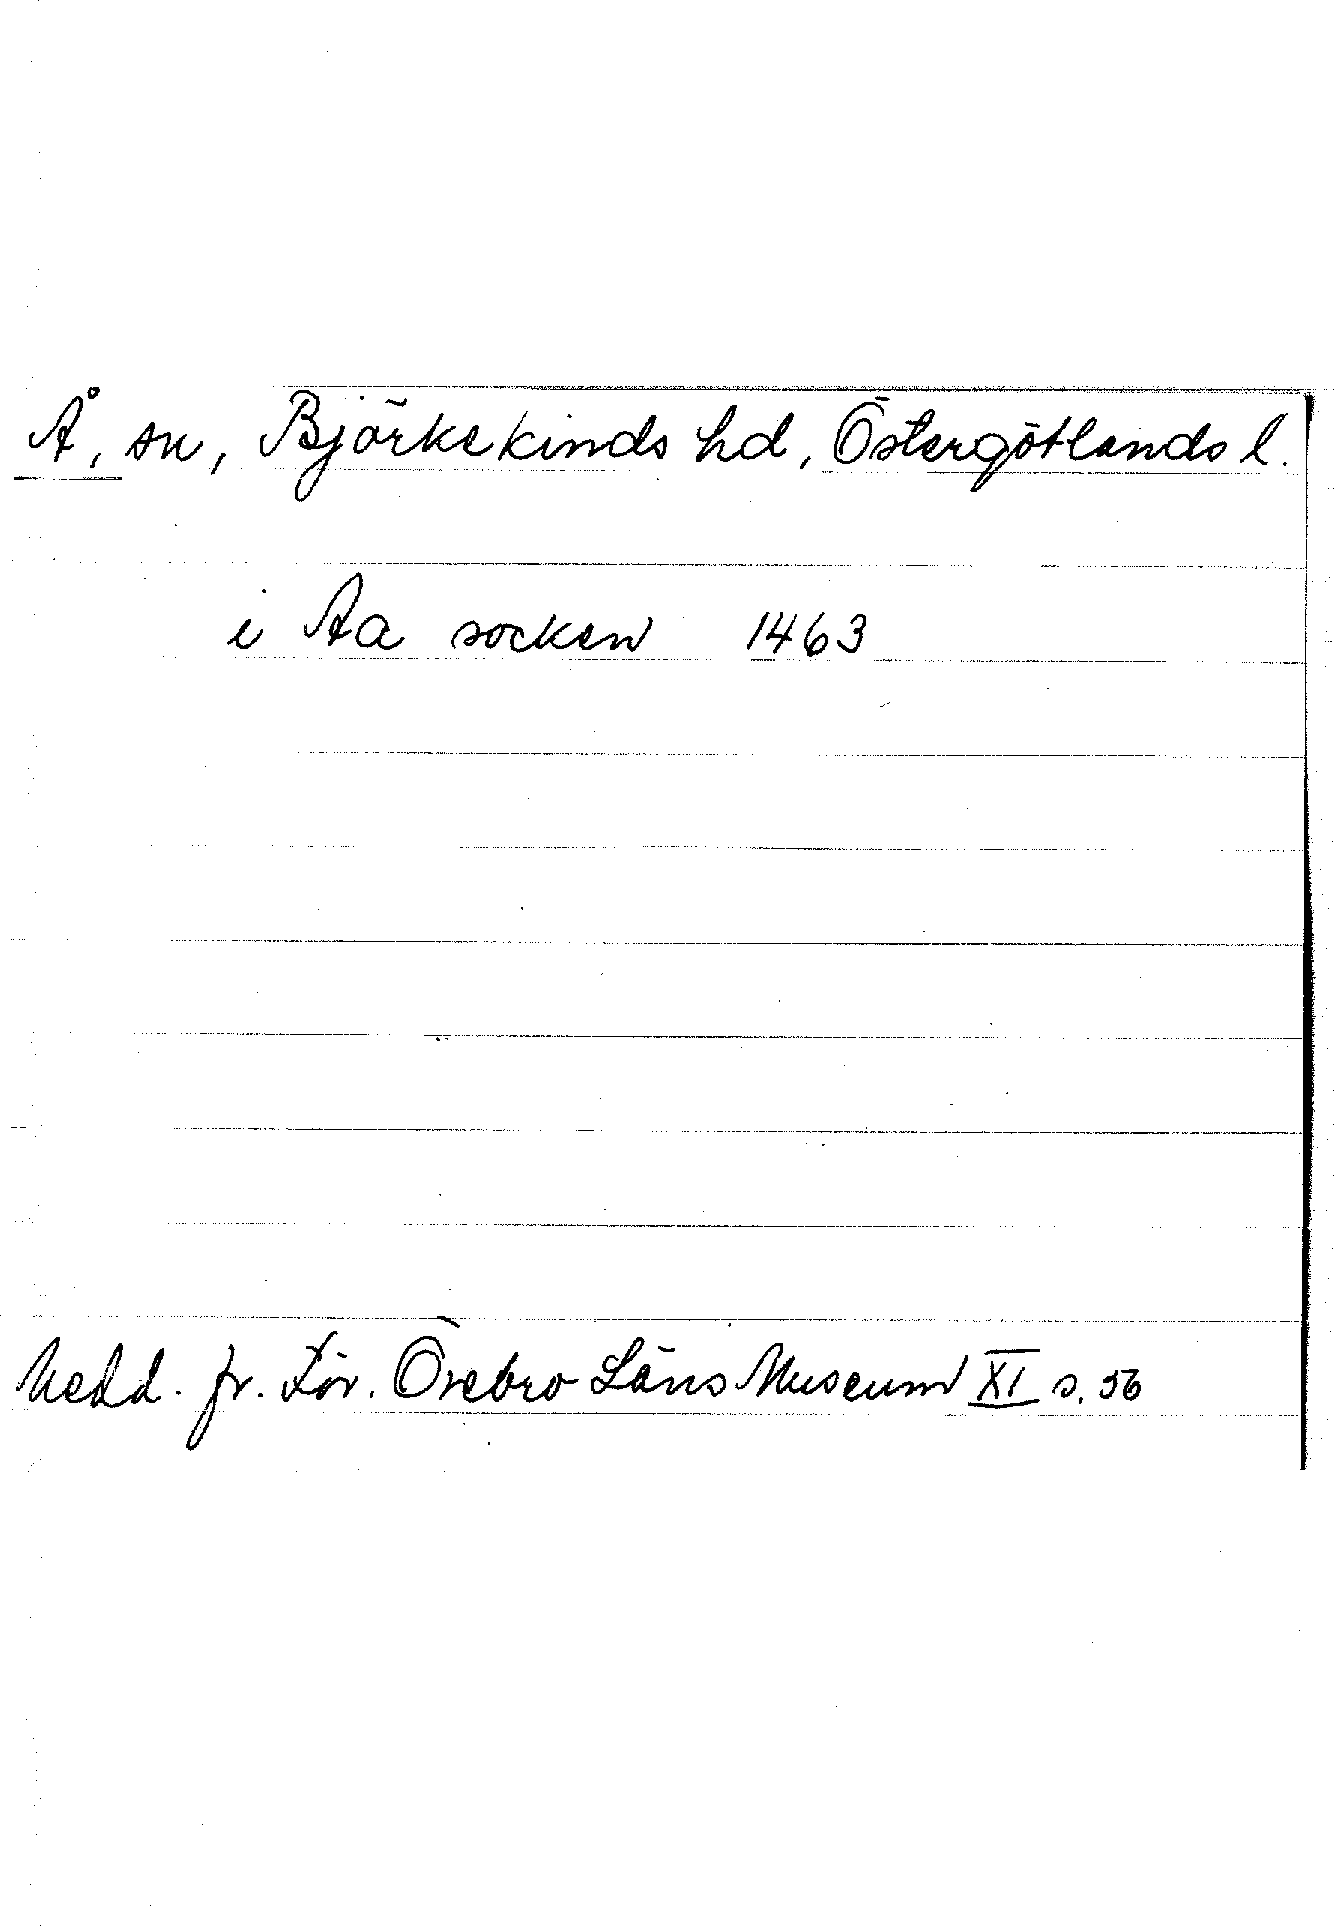 Å, sn, Björkekinds hd, Östergötlands l.
i Aa socken 1463
Medd. fr. För. Örebro Läns Museum XI s. 56